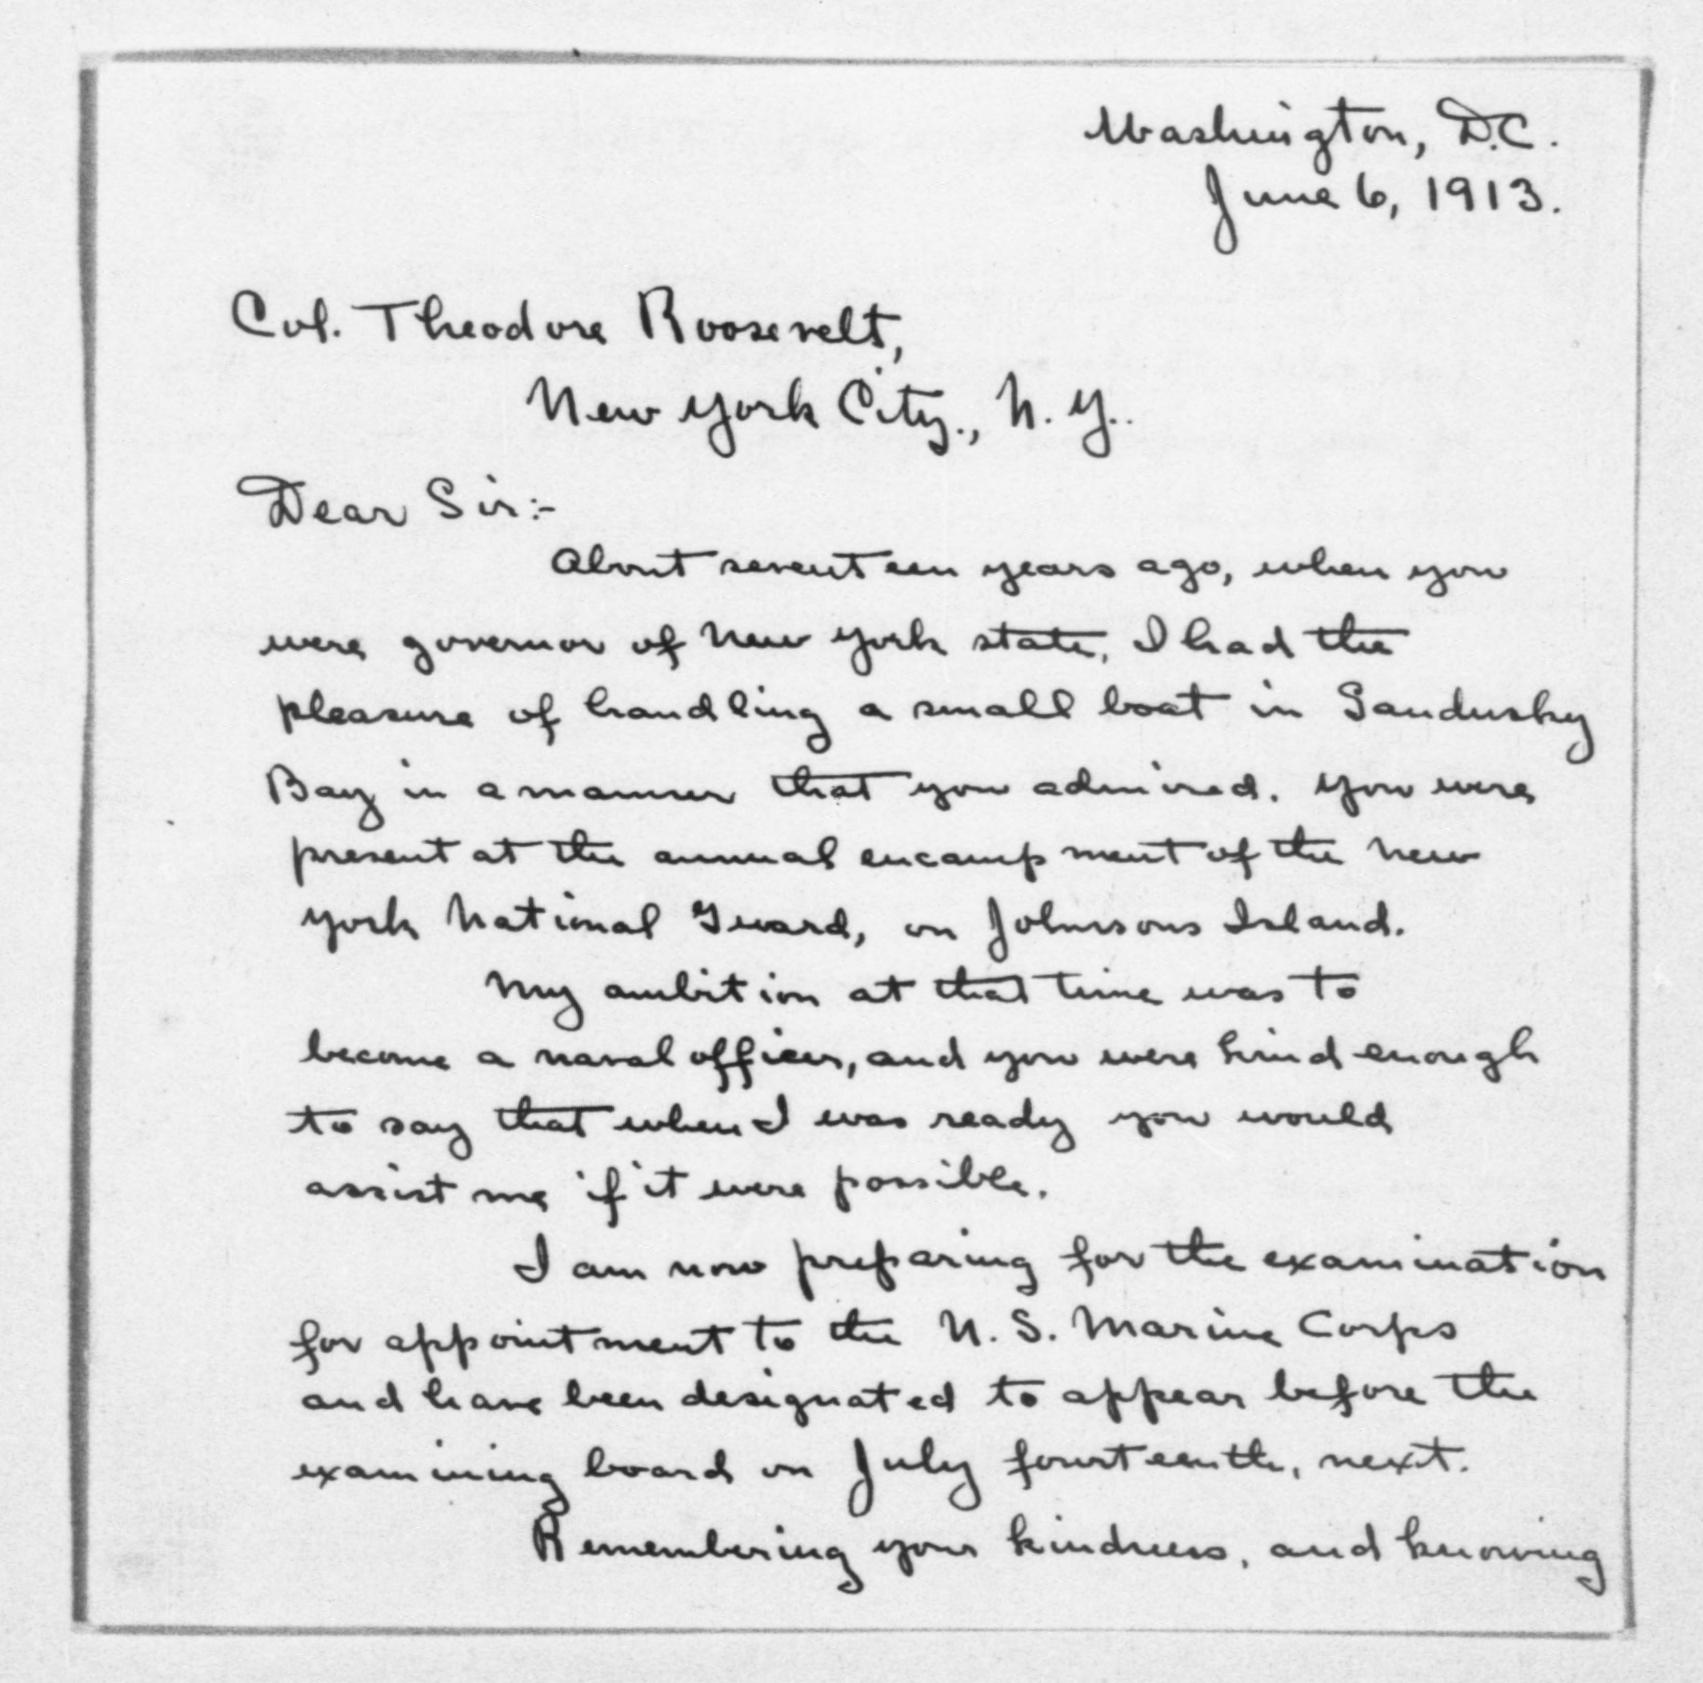 Washington, D.C.
June 6, 1913.
Col. Theodore Roosevelt,
New York City., N. Y..
Dear Sir:-
About seventeen years ago, when you
were governor of New York state, I had the
pleasure of handling a small boat in Sandusky
Bay in a manner that you admired. You were
present at the annual encampment of the New
York National Guard, on Johnsons Island.
My ambition at that time was to
become a naval officer, and you were kind enough
to say that when I was ready you would
assist me if it were possible.
I am now preparing for the examination
for appointment to the U. S. Marine Corps
and have been designated to appear before the
examining board on July fourteenth, next.
Remembering your kindness, and knowing